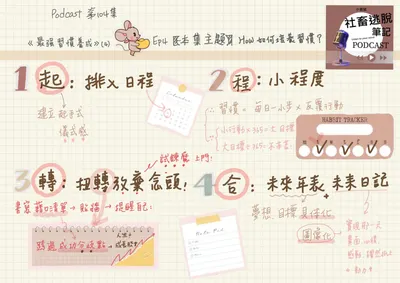 Podcast 第104集
《最強習慣養成》(4)
Ep4 医本集主題算 How 如何培養習慣?
社畜逃脫
筆記
PODCAST
1 起：排入日程
建立起手式
儀式感
Calendar
2 程：小程度
習慣 = 每日一小步 × 反覆行動
小行動×365=大目標
大目標÷365=
HABBIT TRACKER
試煉魔上門!
3 轉：扭轉放棄念頭!
書寫藉口清單→貼牆→提醒自己
跨過成功分歧點
4 合：未來年表 未來日記
夢想 目標 具体化
圖像化
Note Pad